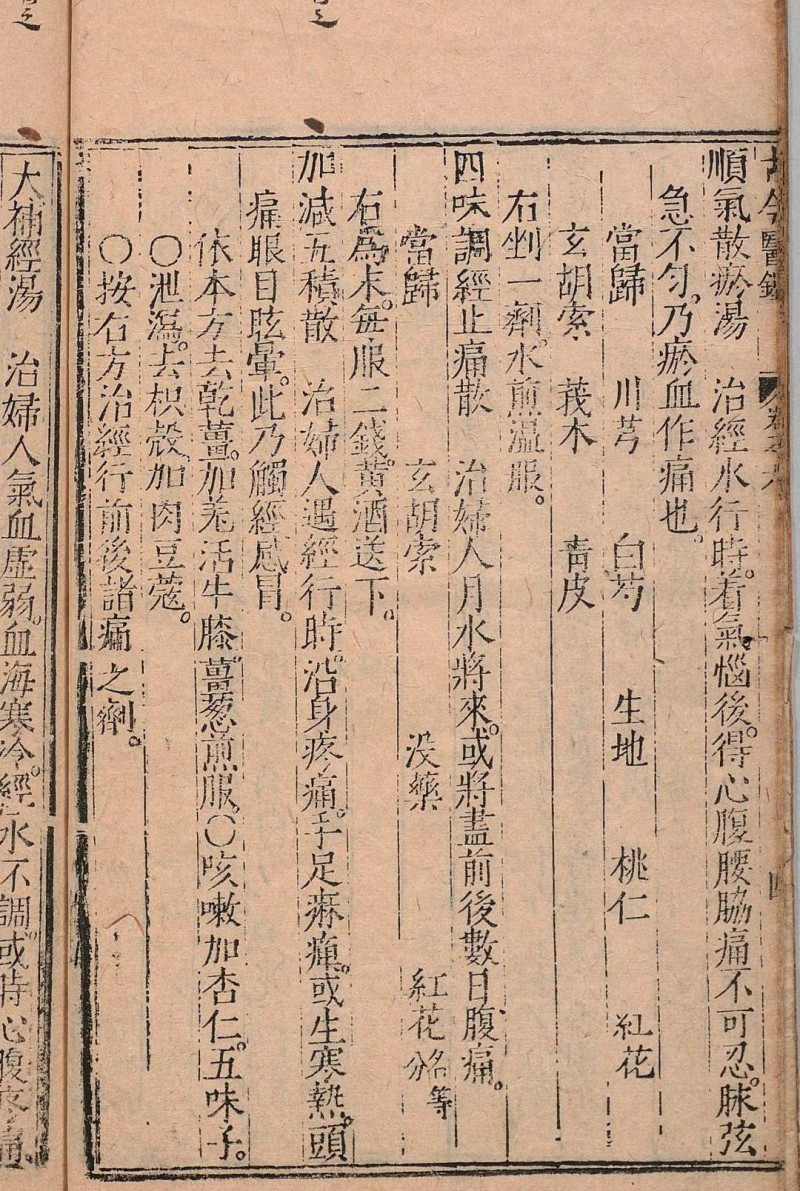 古今醫鑑 卷之
順氣散瘀湯 治經水行時。着氣惱後。得心腹腰脇痛不可忍。脉弦
急不勻。乃瘀血作痛也。
當歸 川芎 白芍 生地 桃仁 紅花
玄胡索 莪朮 青皮
右剉一劑。水煎溫服。
四味調經止痛散 治婦人月水將來。或將盡前後數日腹痛。
當歸 玄胡索 没藥 紅花各等分
右為末。每服二錢。黃酒送下。
加減五積散 治婦人遇經行時。沿身疼痛。手足麻痺。或生寒熱。頭
痛眼目眩暈。此乃觸經感冒。
依本方去乾薑。加羌活牛膝薑葱煎服。〇咳嗽加杏仁。五味子。
〇泄瀉。去枳殼。加肉豆蔻。
〇按右方治經行前後諸痛之劑。
大補經湯 治婦人氣血虛弱。血海寒冷。經水不調。或時心腹疼痛